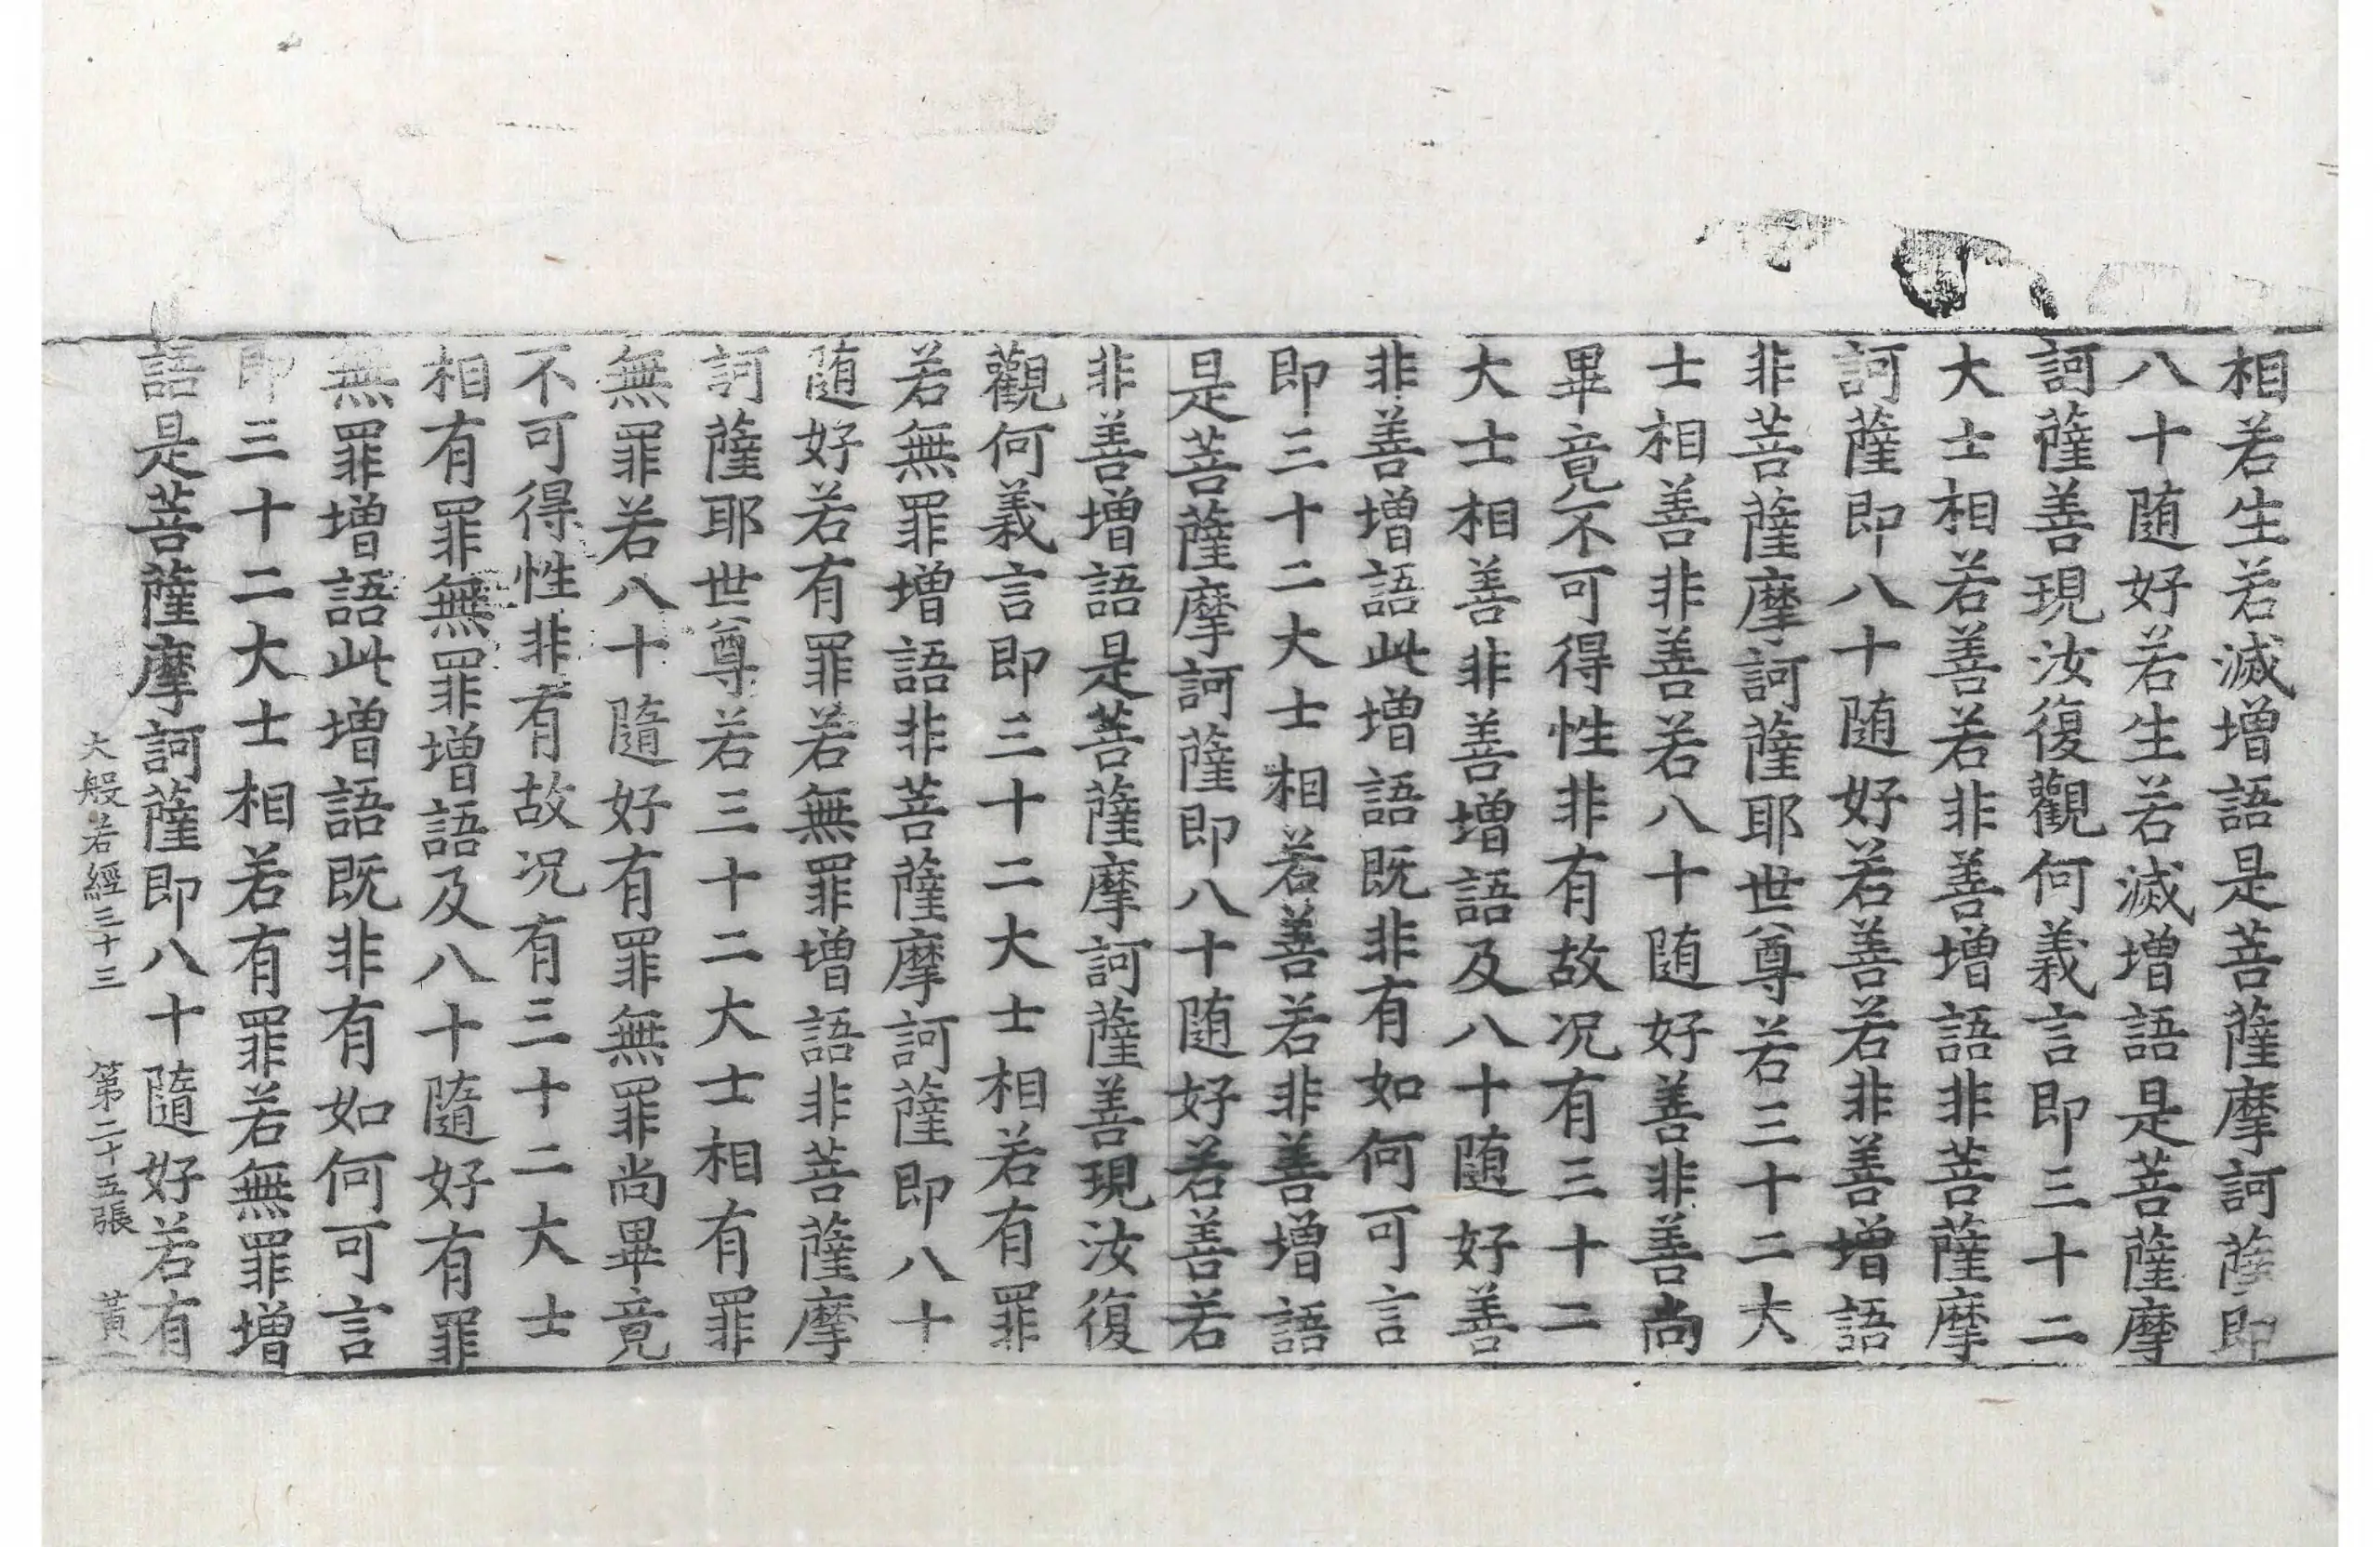 相若生若滅增語是菩薩摩訶薩即
八十随好若生若滅增語是菩薩摩
訶薩善現汝復觀何義言即三十二
大士相若善若非善增語非菩薩摩
訶薩即八十随好若善若非善增語
非菩薩摩訶薩耶世尊若三十二大
士相善非善若八十随好善非善尚
畢竟不可得性非有故况有三十二
大士相善非善增語及八十随好善
非善增語此增語既非有如何可言
即三十二大士相若善若非善增語
是菩薩摩訶薩即八十随好若善若
非善增語是菩薩摩訶薩善現汝復
觀何義言即三十二大士相若有罪
若無罪增語非菩薩摩訶薩即八十
随好若有罪若無罪增語非菩薩摩
訶薩耶世尊若三十二大士相有罪
無罪若八十隨好有罪無罪尚畢竟
不可得性非有故况有三十二大士
相有罪無罪增語及八十隨好有罪
無罪增語此增語既非有如何可言
即三十二大士相若有罪若無罪增
語是菩薩摩訶薩即八十隨好若有
大般若經三十三 第二十五張 黃